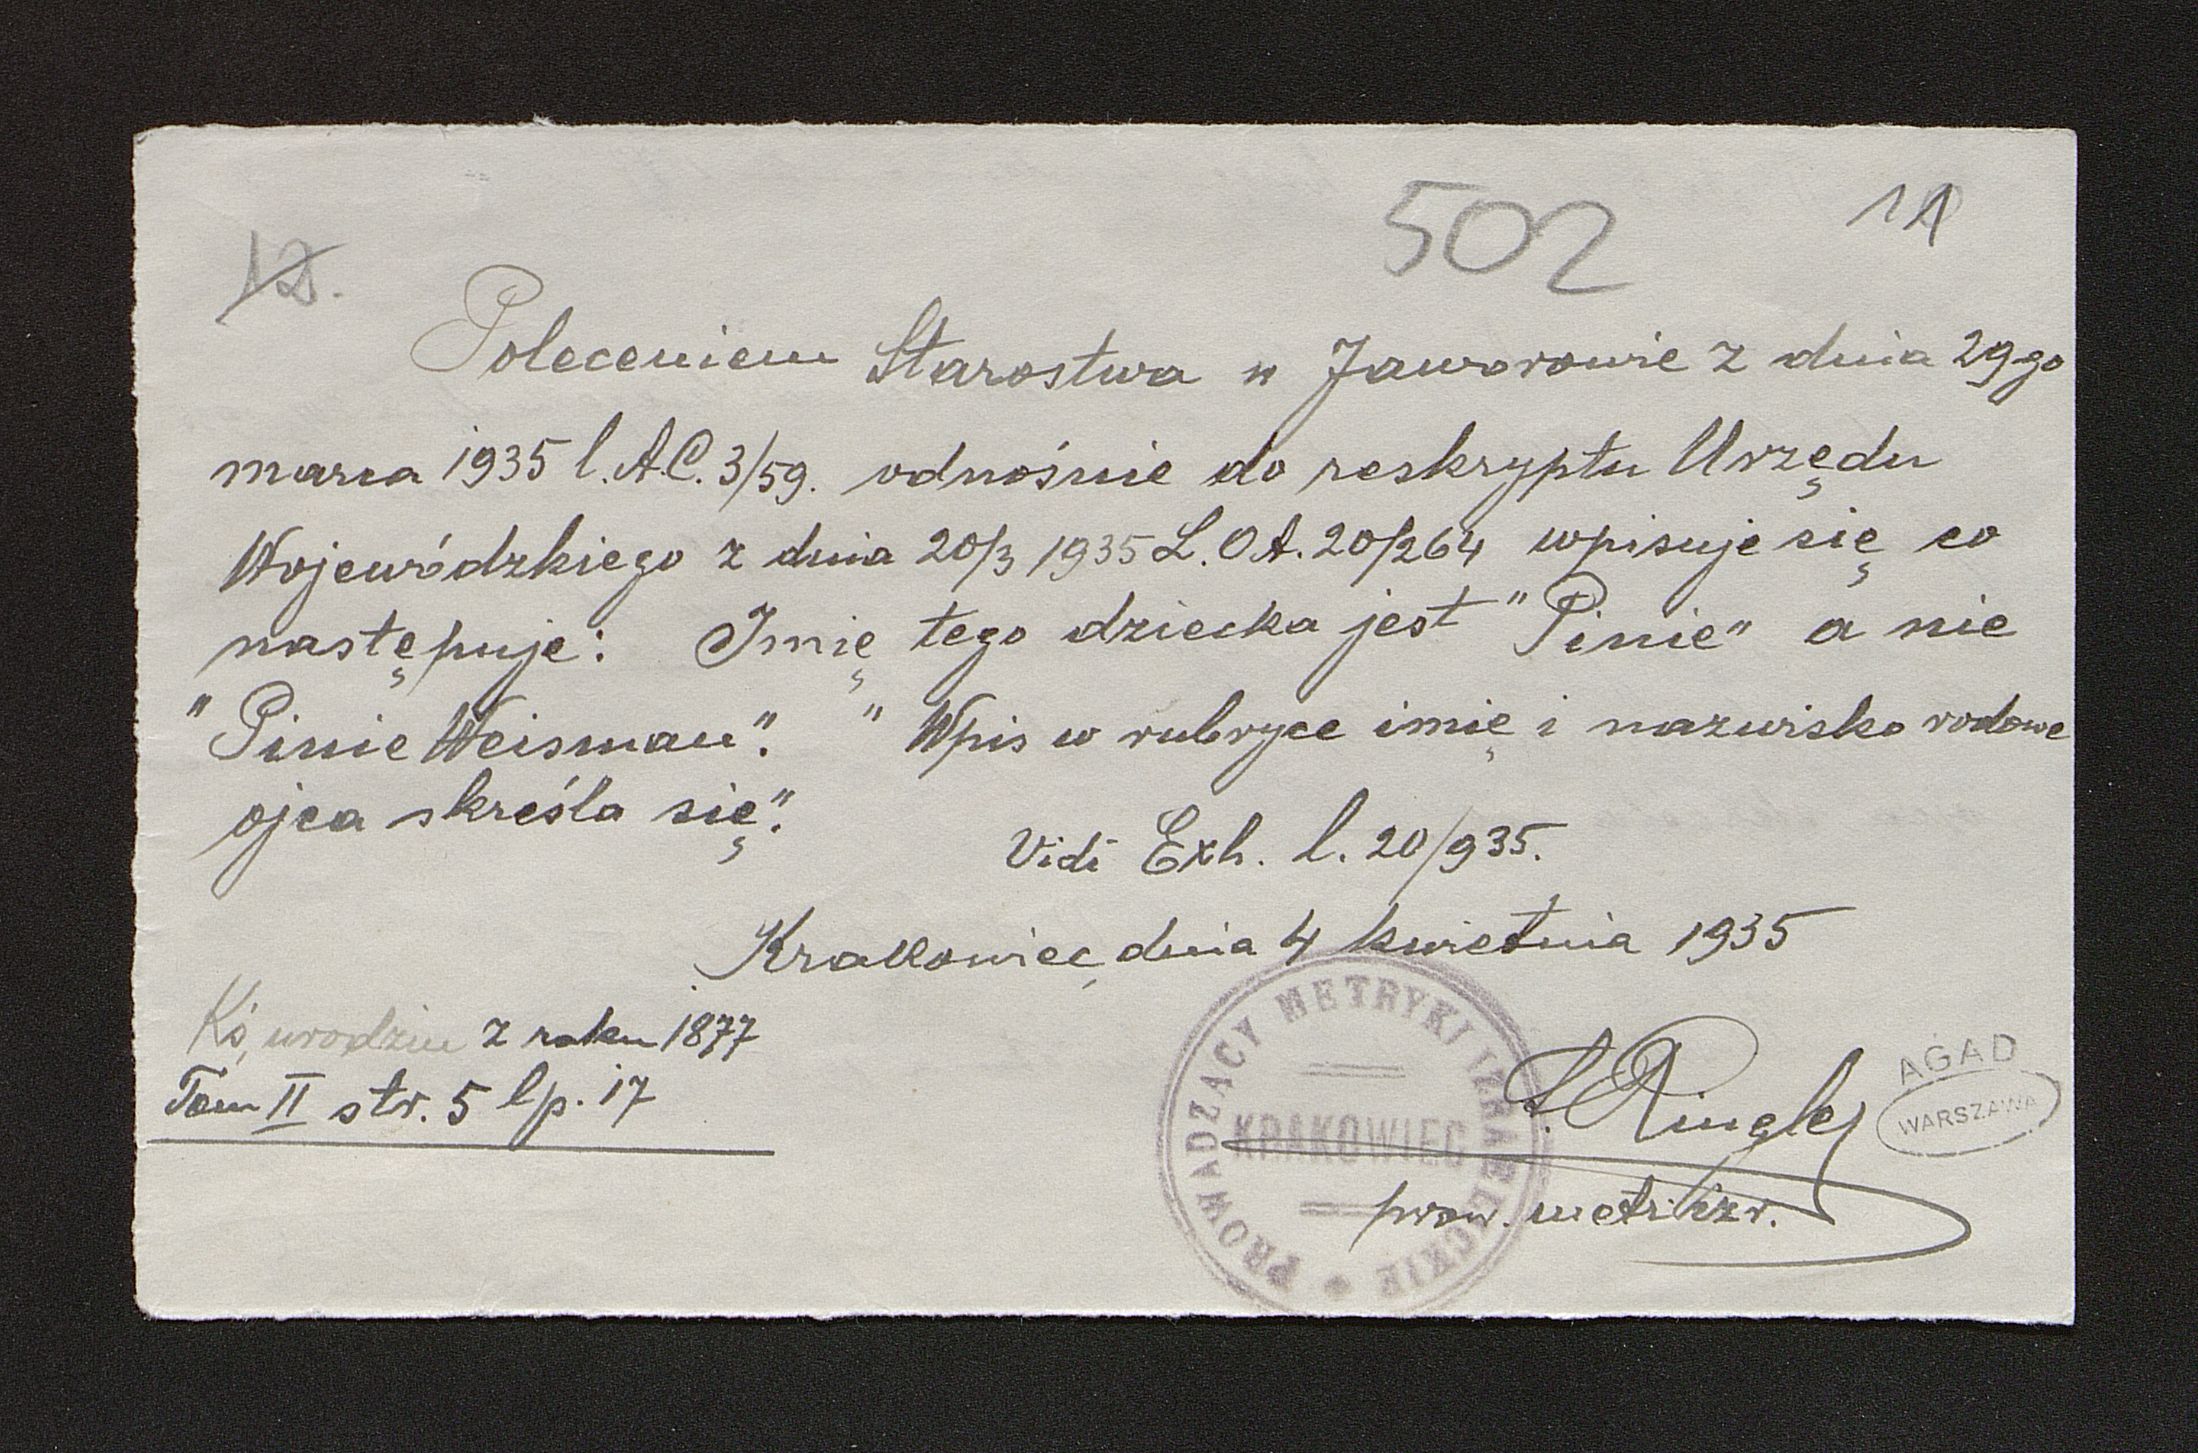 502
11
12.
Poleceniem Starostwa w Jaworowie z dnia 29-go
marca 1935 l. A.C. 3/59. odnośnie do reskryptu Urzędu
Wojewódzkiego z dnia 20/3 1935 L. OA. 20/264 wpisuje się co
następuje: Imię tego dziecka jest "Pinie" a nie
"Pinie Weisman". " Wpis w rubryce imię i nazwisko rodowe
ojca skreśla się".
Vidi Exh. l. 20/935.
Krakowiec, dnia 4 kwietnia 1935
Ks. urodzin z roku 1877
Tom II str. 5 lp. 17
PROWADZĄCY METRYKI IZRAELICKIE
KRAKOWIEC
AGAD
WARSZAWA
prow. metr. izr.